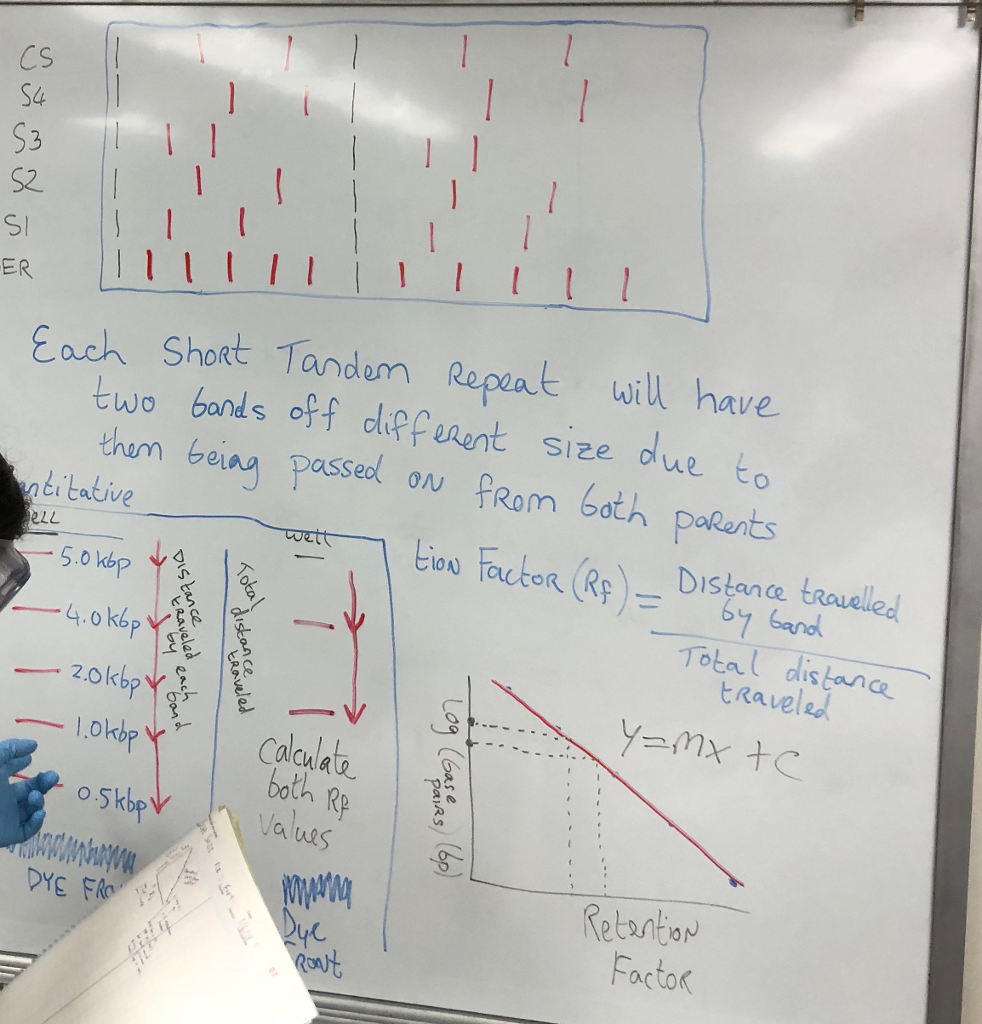 CS
S4
S3
S2
S1
ER
Each Short Tandem Repeat will have
two bands off different size due to
them being passed on from both parents
ntitative
ell
5.0kbp
4.0kbp
2.0kbp
1.0kbp
0.5kbp
Distance
traveled
by each
band
DYE FRO
well
Total distance
traveled
Calculate
both Rf
values
Dye
ront
tion Factor (Rf) = Distance travelled
by band
Total distance
traveled
Log (base
pairs) (bp)
y=mx +c
Retention
Factor